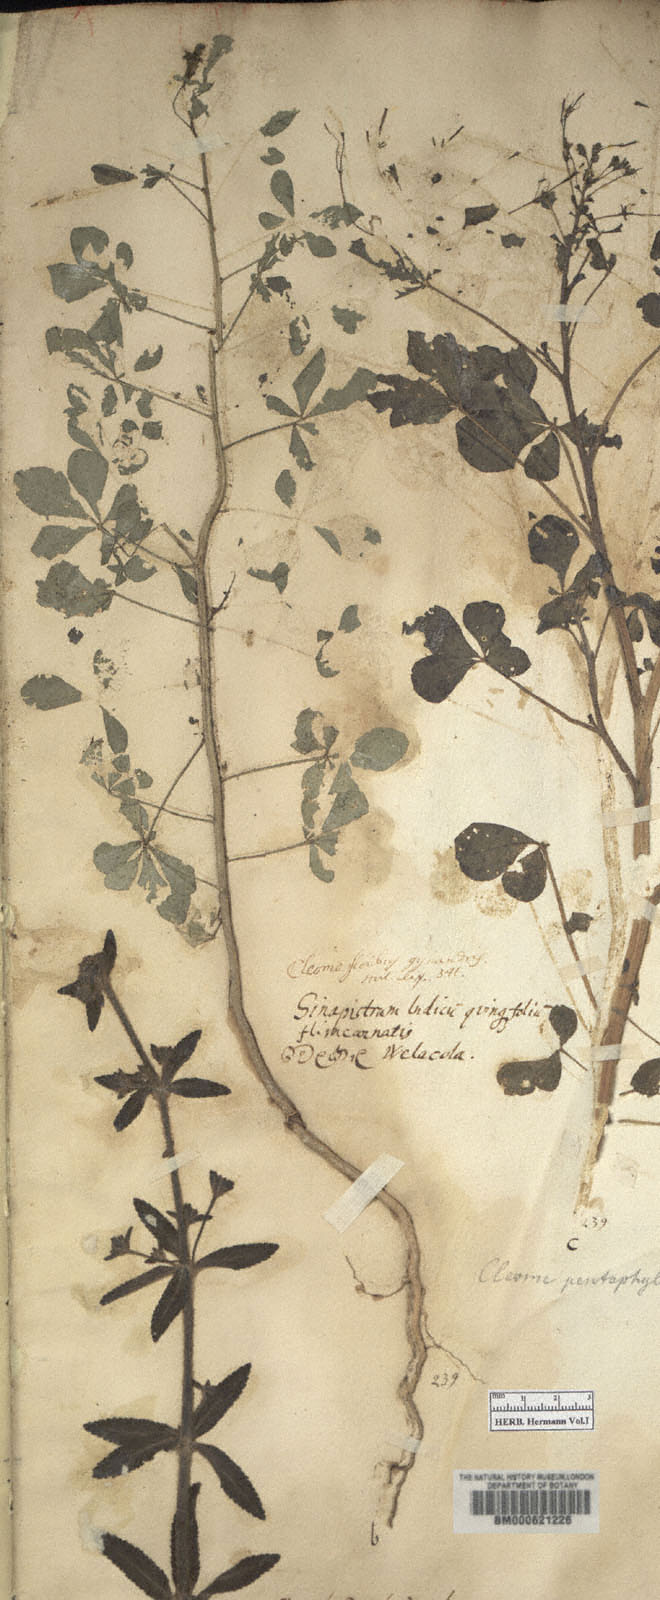 Cleome floribus gynandris.
Sinapistrum Indicũ quinq folium
fl: incarnatis
Welacola.
239
C
Cleome pentaphyl
239
mm 1 2 3
HERB. Hermann Vol.I
THE NATURAL HISTORY MUSEUM, LONDON
DEPARTMENT OF BOTANY
BM000621226
b